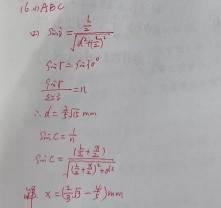 16.(1)ABC
(2) sin i = \frac{\frac{L}{2}}{\sqrt{d^2+(\frac{L}{2})^2}}
sin r = sin30°
\frac{sin r}{sin i} = n
∴ d = \frac{2}{5}\sqrt{15} mm
sin C = \frac{1}{n}
sin C = \frac{(\frac{L}{2}+\frac{x}{2})}{\sqrt{(\frac{L}{2}+\frac{x}{2})^2+d^2}}
x = ( \sqrt{3} - ) mm